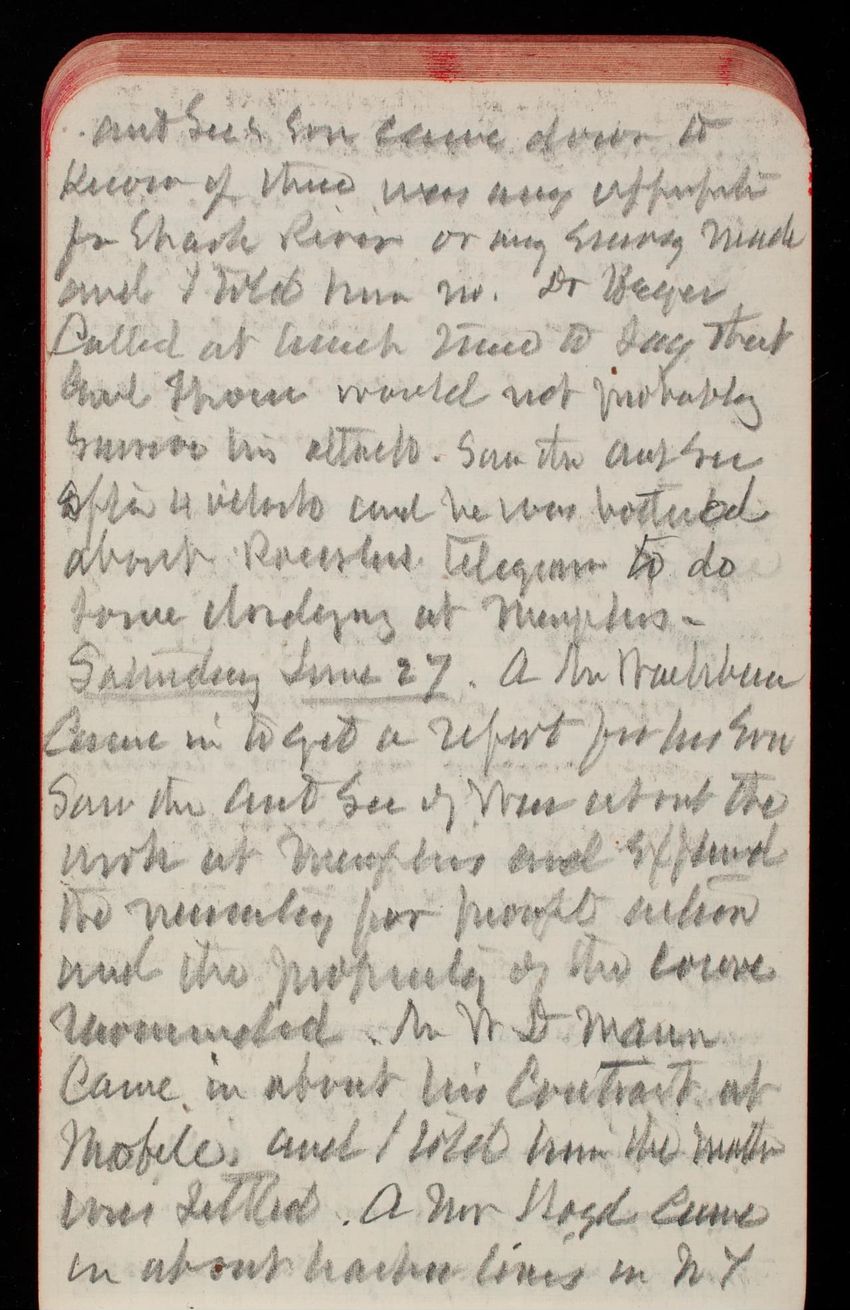 and Secs Son came down to
know if there was any appropriti
for Shark River or any Survey made
and I told him no. Dr
Called at lunch time to say that
Genl would not probably
survive his attack. Saw the Aast Sec
after 4 o'clock and he was bothered
about telegram to do
some dredging at Memphis -
Saturday June 27. A Mr Washburn
Came in to get a report for his Son
Saw the Aast Sec of War about the
work at Memphis and Explaind
the necessity for prompt action
and the propriety of the course
recommended. Mr W D Mann
Came in about his Contract at
Mobile, and I told him the matter
was Settled. A Mr Came
in about harbor lines in N Y